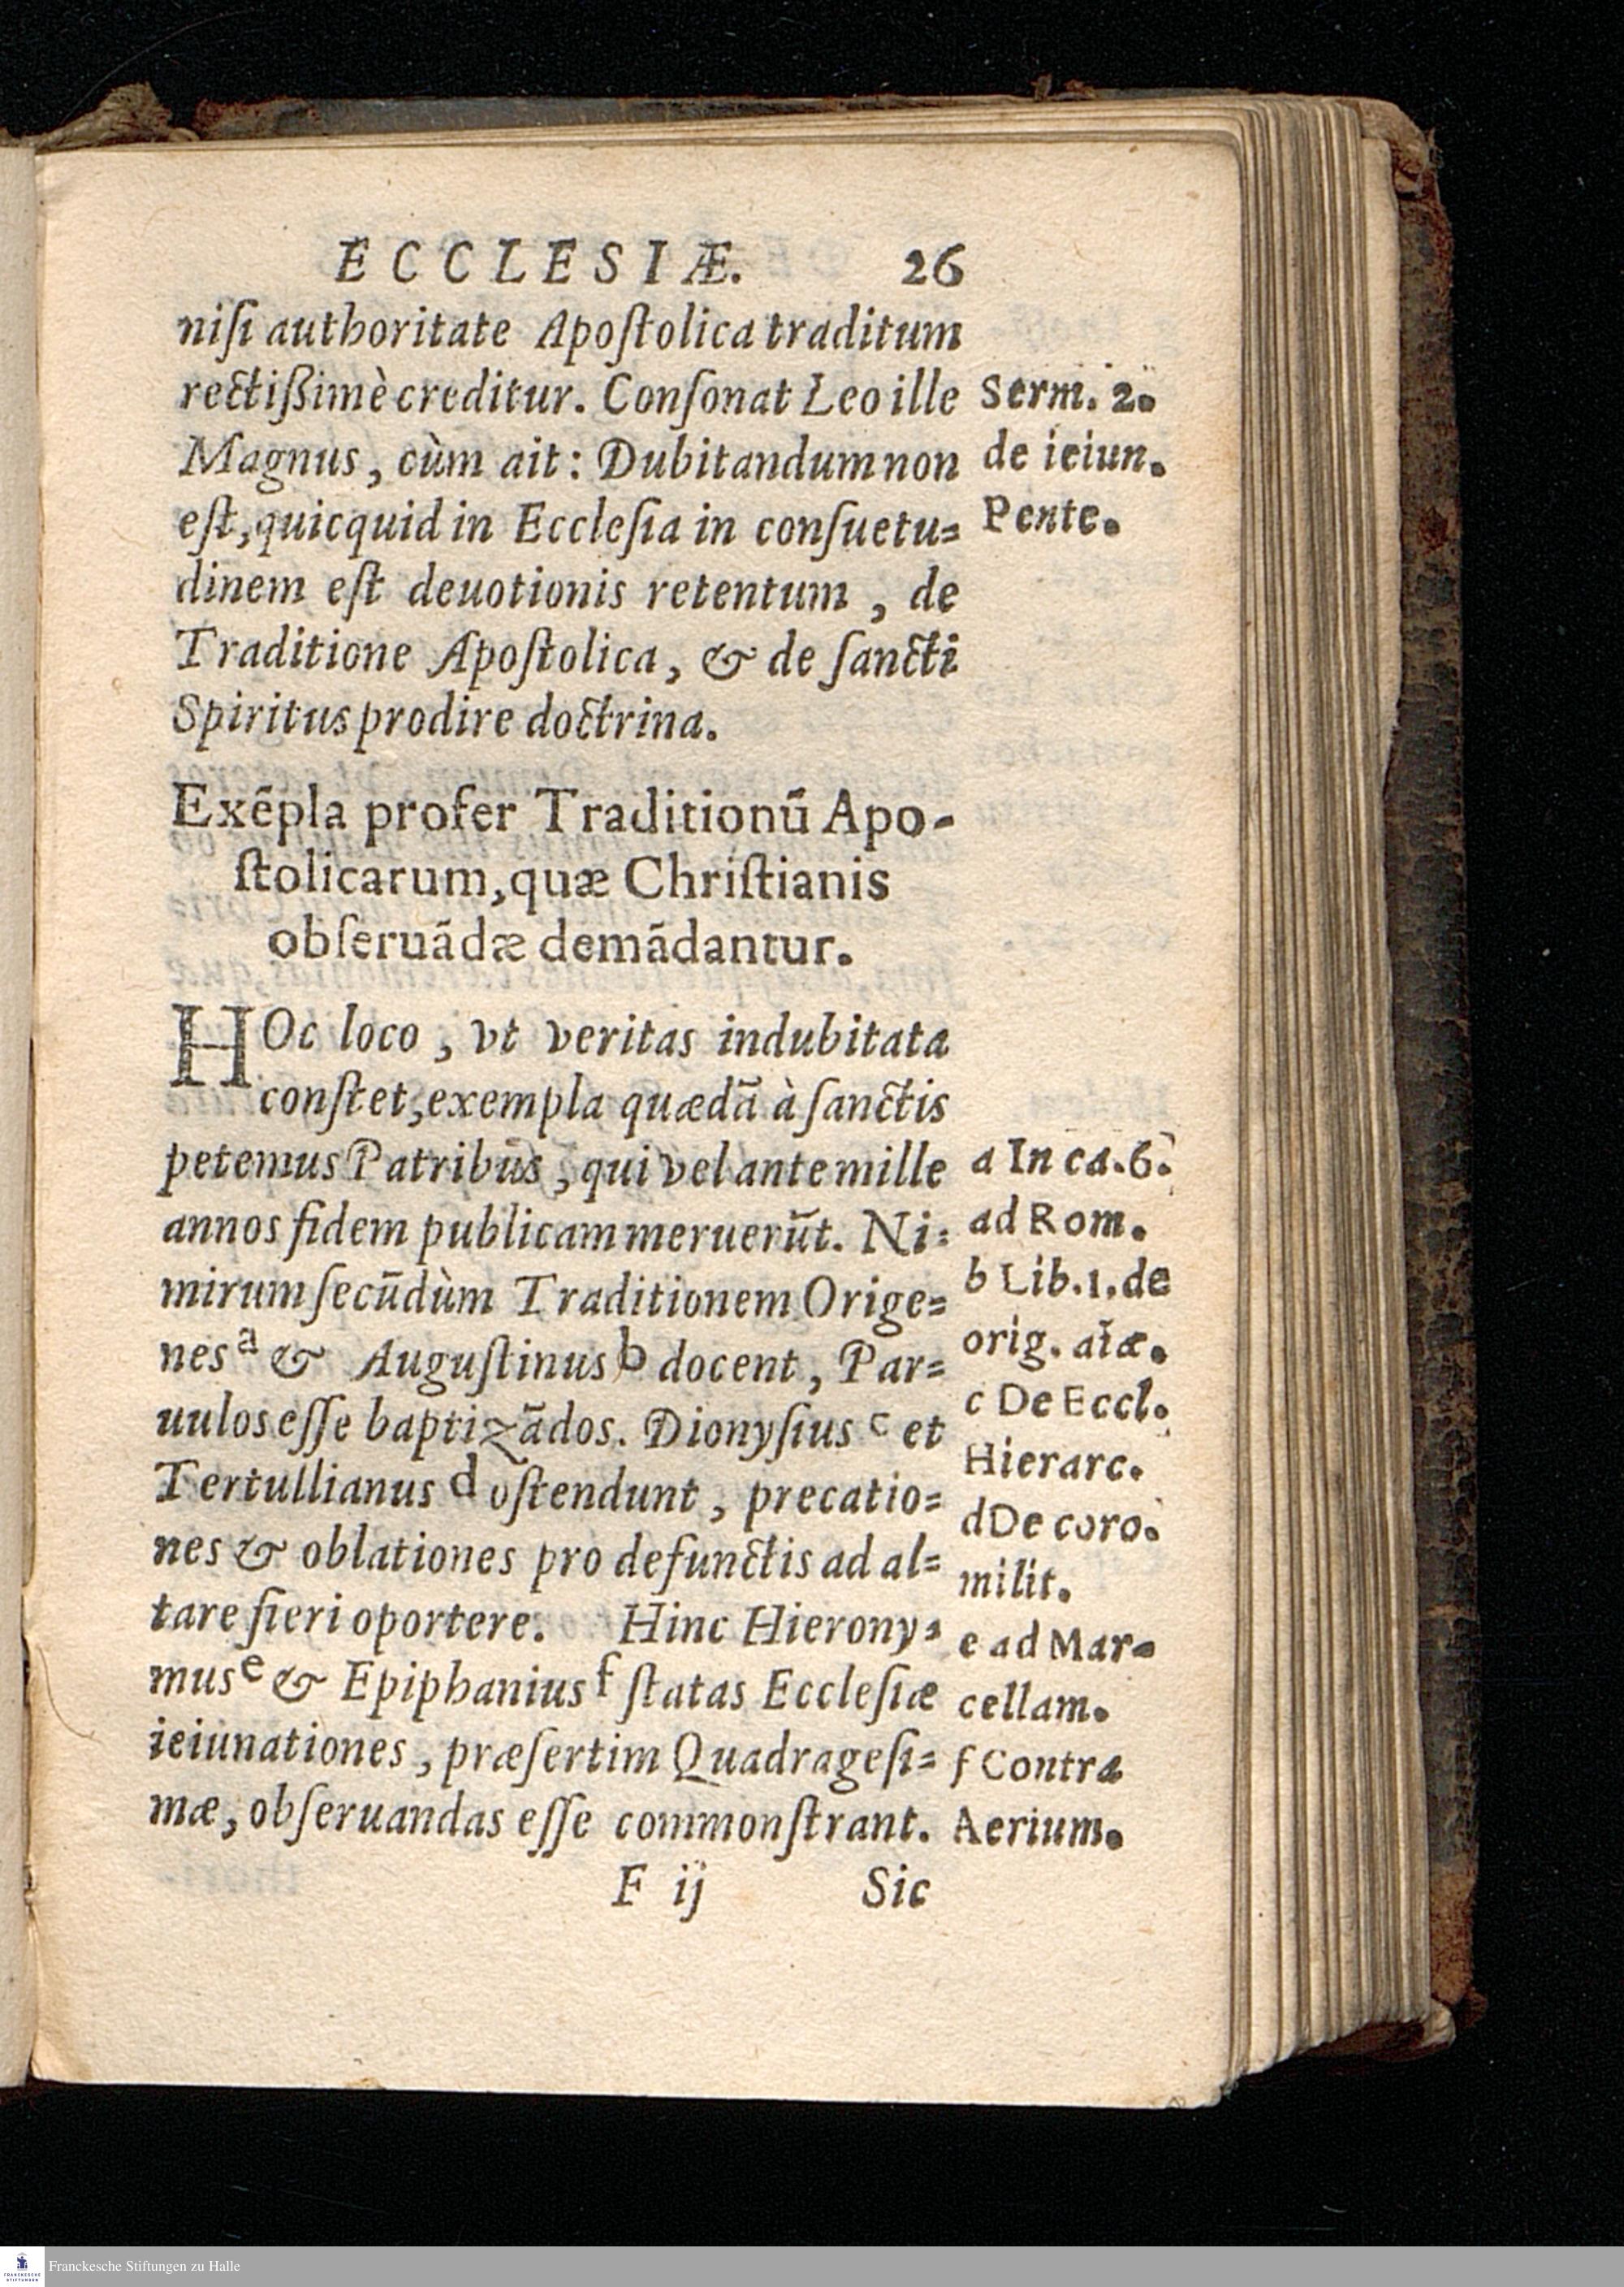 ECCLESIÆ. 26
niſi authoritate Apoſtolica traditum
rectißimè creditur. Conſonat Leo ille
Magnus, cùm ait: Dubitandum non
eſt, quicquid in Eccleſia in conſuetu=
dinem eſt deuotionis retentum, de
Traditione Apoſtolica, & de ſancti
Spiritus prodire doctrina.
Serm. 2.
de ieiun.
Pente.
Exẽpla profer Traditionũ Apo-
ſtolicarum, quæ Chriſtianis
obſeruãdæ demãdantur.
HOc loco, vt veritas indubitata
conſtet, exempla quædã à ſanctis
petemus Patribus, qui vel ante mille
annos fidem publicam meruerũt. Ni=
mirum ſecũdùm Traditionem Orige=
nes a & Auguſtinus b docent, Par=
uulos eſſe baptizãdos. Dionyſius c et
Tertullianus d oſtendunt, precatio=
nes & oblationes pro defunctis ad al=
tare fieri oportere. Hinc Hierony=
mus e & Epiphanius f ſtatas Eccleſiæ
ieiunationes, præſertim Quadrageſi=
mæ, obſeruandas eſſe commonſtrant.
a In ca. 6.
ad Rom.
b Lib. 1. de
orig. aĩæ.
c De Eccl.
Hierarc.
d De coro.
milit.
e ad Mar-
cellam.
f Contra
Aerium.
F ij Sic
Franckesche Stiftungen zu Halle
FRANCKESCHE
STIFTUNGEN